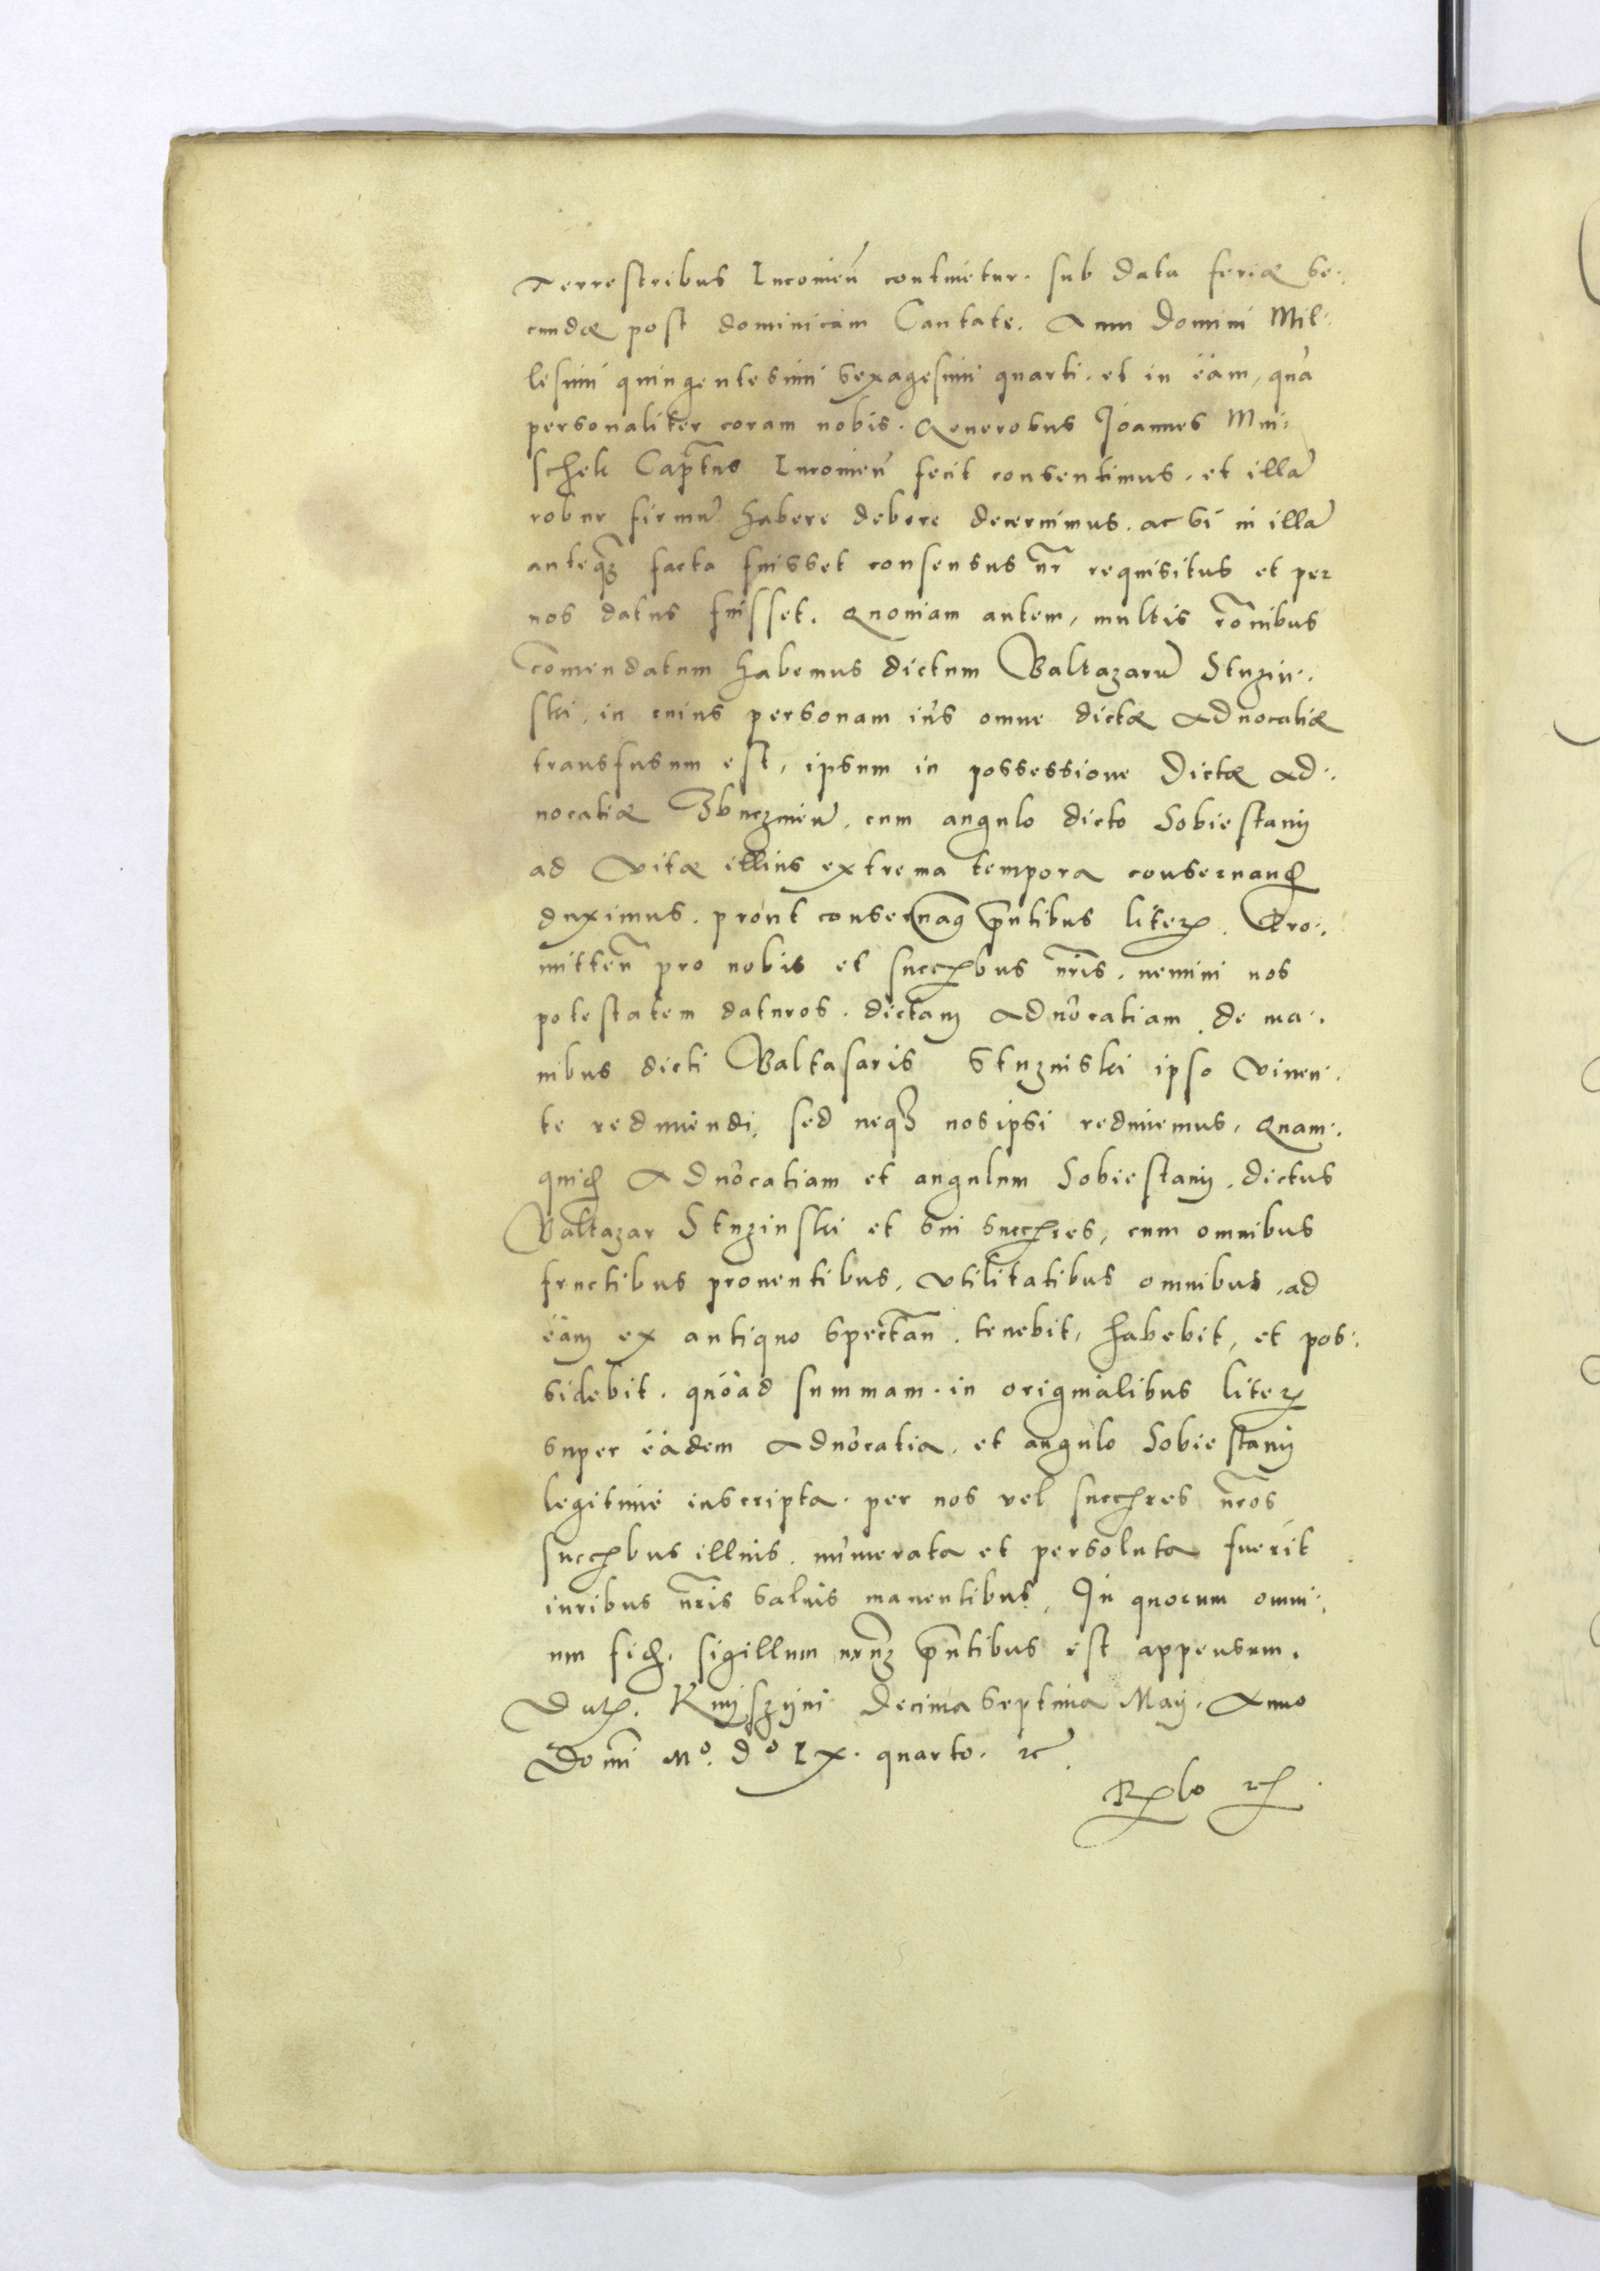 Terrestribus Lucovien̄ continetur. sub data feriæ se-
cundæ post dominicam Cantate. Anni Domini Mil-
lesimi quingentesimi sexagesimi quarti. et in eam, qua
personaliter coram nobis. Generosus Joannes Mni-
schek Capt̄us Lucovien̄ fecit consentimus, et illā
robur firmū habere debere decernimus. ac si in illā
anteq̄ʒ facta fuisset consensus nr̄ requisitus et per
nos datus fuisset. Quoniam autem, multis rōnibus
cōmendatum habemus dictum Baltazarū Stuzin-
ski, in cuius personam ius omne dictæ Aduocatiæ
transfusum est, ipsum in possessione dictæ Ad-
uocatiæ Zbuczinen̄, cum angulo dicto Sobiestany
ad vitæ illius extrema tempora conseruand
duximus. prout conseruamꝰ pn̄tibus literꝭ. Pro-
mitten̄ pro nobis et succꝭbus nr̄is, nemini nos
potestatem daturos. dictam Aduocatiam de ma-
nibus dicti Baltasaris Stuzinski ipso viuen-
te redimendi, sed neqꝫ nosipsi redimemus, Quam-
quid Aduocatiam et angulum Sobiestany, dictus
Baltazar Stuzinski et sui succꝭres, cum omnibus
fructibus prouentibus, vtilitatibus omnibus, ad
eam ex antiquo spectan̄. tenebit, habebit, et pos-
sidebit. quoad summam in originalibus literꝭ
super eadem Aduocatia, et angulo Sobiestany
legitime inscripta. per nos vel succꝭres nr̄os
succꝭbus illius. numerata et persoluta fuerit
iuribus nr̄is saluis manentibus, In quorum omni-
um fid. sigillum nrūʒ pn̄tibus est appensum.
Datꝭ. Knyszyni Decima septima Maij. Anno
Domi͞ Mº. dº Lx. quarto. ꝛc
Rꝭlo ꝛꝭ